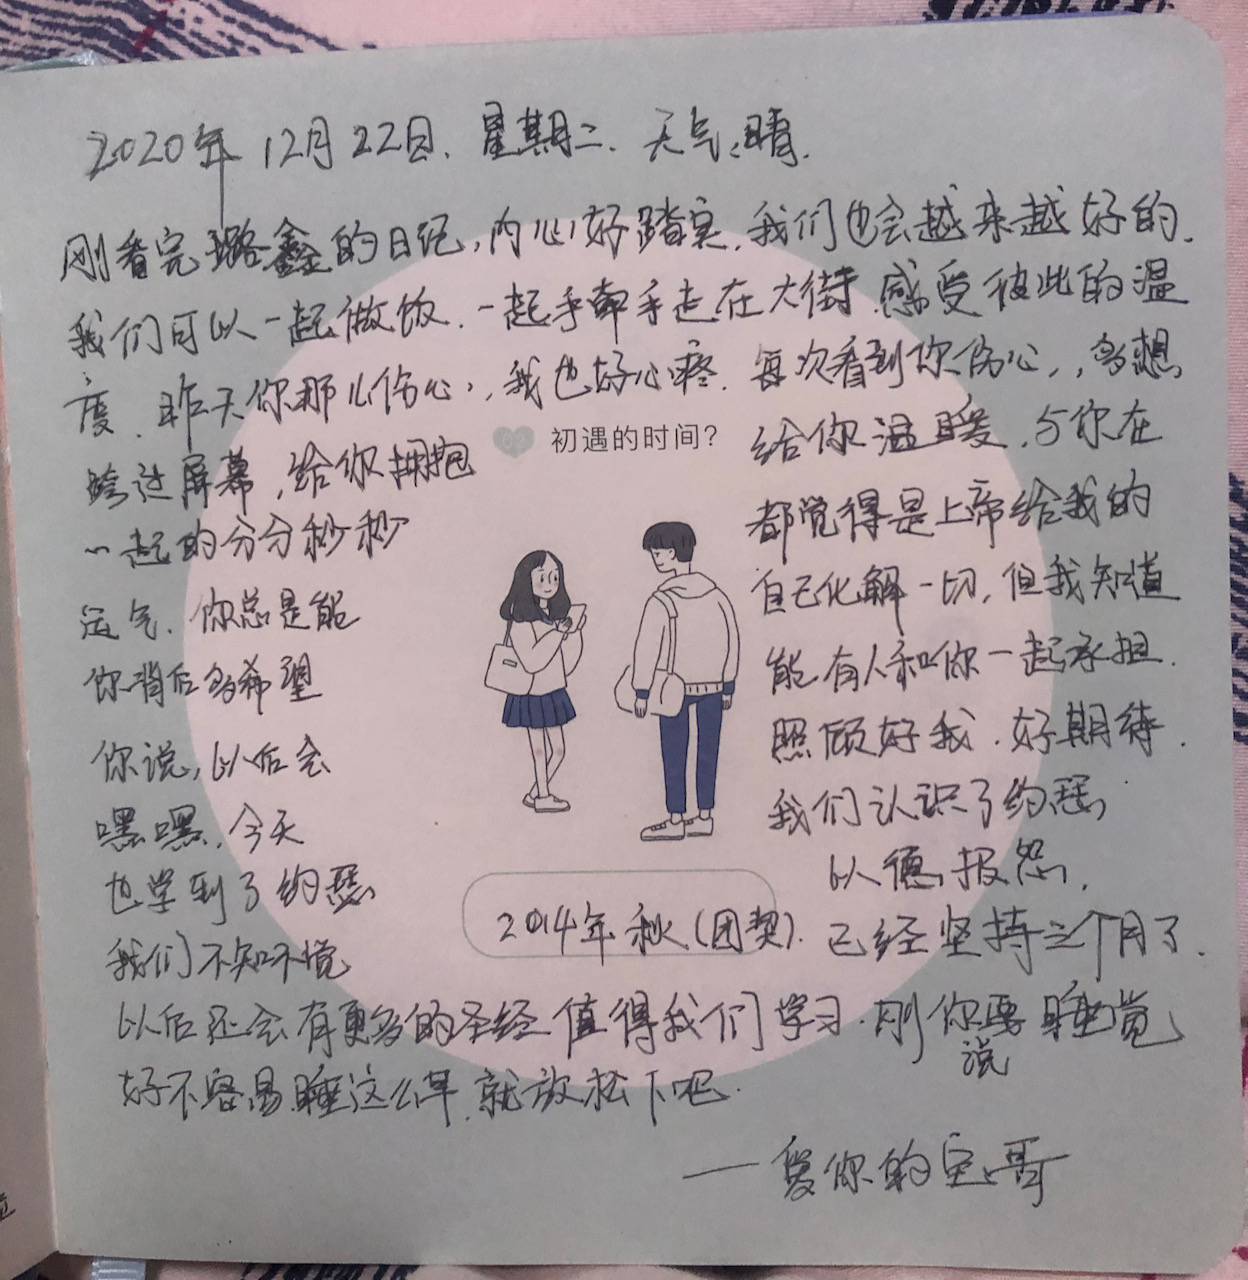 2020年12月22日、星期二、天气:晴.
刚看完璐鑫的日记,内心好踏实,我们也会越来越好的.
我们可以一起做饭.一起手牵手走在大街.感受彼此的温
度.昨天你那儿伤心,我也好心疼.每次看到你伤心,,多想
跨过屏幕,给你拥抱 给你温暖.与你在
初遇的时间?
一起的分分秒秒 都觉得是上帝给我的
运气.你总是能 自己化解一切,但我知道
你背后多希望 能有人和你一起承担.
你说,以后会 照顾好我.好期待.
嘿嘿,今天 我们认识了约瑟,
也学到了约瑟 以德报怨,
2014年秋(团契).
我们不知不觉 已经坚持三个月了.
以后还会有更多的圣经值得我们学习.刚你要睡觉
说
好不容易睡这么早,就放松下吧.
——爱你的宝哥